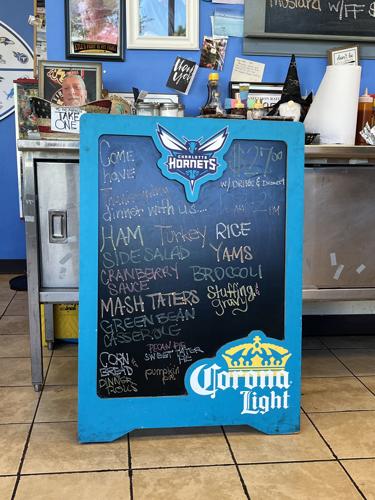 mustard w/FF $
TAKE
ONE
CHARLOTTE
HORNETS
Come
have
Thanksgiving
dinner with us....
$27.00
w/ Drink & Dessert
HAM Turkey RICE
SIDE SALAD YAMS
CRANBERRY
SAUCE
BROCCOLI
MASH TATERS
Stuffing &
gravy
GREEN BEAN
CASSEROLE
CORN
BREAD
DINNER
ROLLS
PECAN PIE
SWEET TATER
PIE
pumpkin
pie
Corona
Light